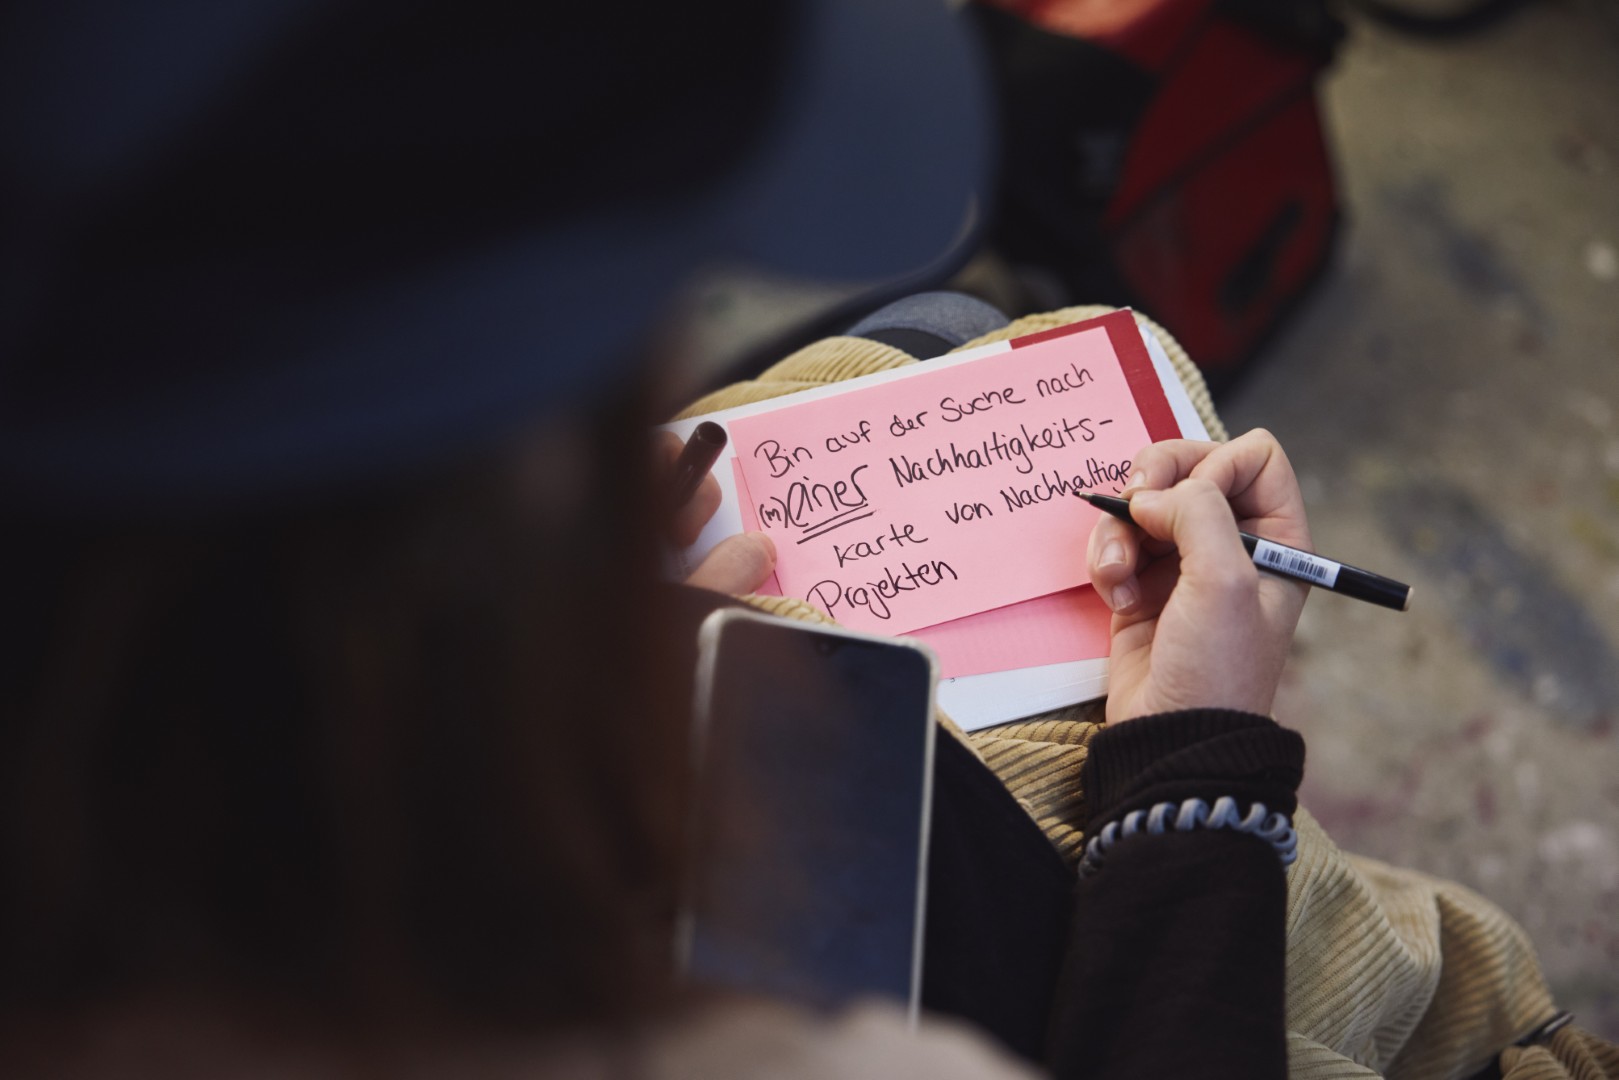 Bin auf der Suche nach
(m)einer Nachhaltigkeits-
karte von Nachhaltige
Projekten